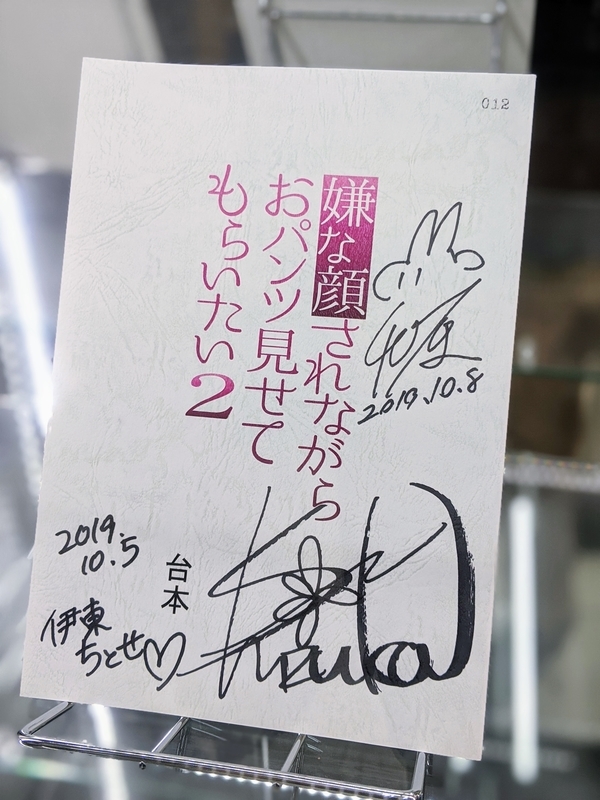 012
嫌な顔されながら
おパンツ見せて
もらいたい2
2019.10.8
台本
2019.
10.5
伊東
ちとせ♡